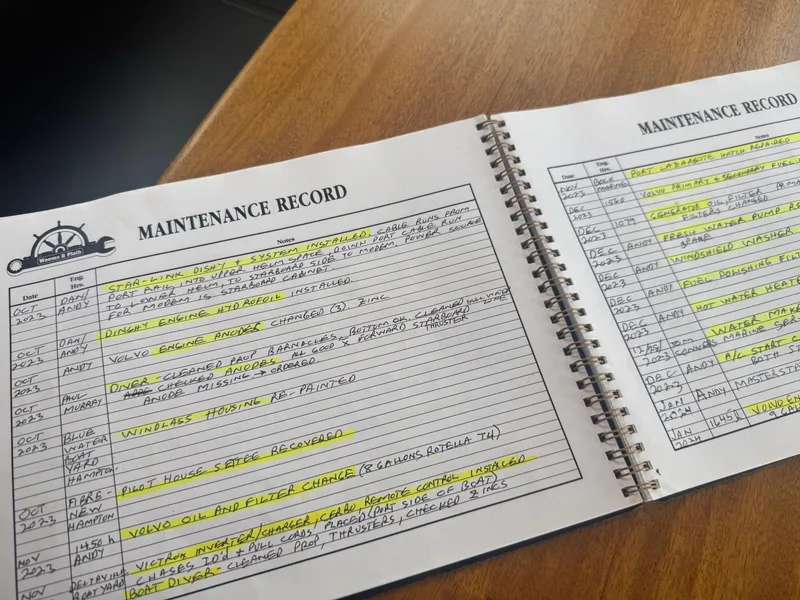 MAINTENANCE RECORD
Weems & Plath
Date
Eng. Hrs.
Notes
OCT 2023
DAN/ ANDY
STAR-LINK DISHY + SYSTEM INSTALLED, CABLE RUNS FROM
PORT RAIL INTO UPPER HELM SPACE, DOWN PORT CABLE RUN
TO LOWER HELM, TO STARBOARD SIDE TO MODEM, POWER SOURCE
FOR MODEM IS STARBOARD CABINET.
OCT 2023
DAN/ ANDY
DINGHY ENGINE HYDROFOIL INSTALLED.
OCT 2023
ANDY
VOLVO ENGINE ANODES CHANGED (3). ZINC
OCT 2023
PAUL MURRAY
DIVER - CLEANED PROP BARNACLES, BOTTOM OK, CLEANED
CHECKED ANODES ALL GOOD X FORWARD STARBOARD
THRUSTER
ANODE MISSING → ORDERED.
OCT 2023
BLUE WATER BOAT YARD HAMPTON.
WINDLASS HOUSING RE-PAINTED
FIBRE-NEW HAMPTON
PILOT HOUSE SETTEE RECOVERED
OCT 2023
1450 h ANDY
VOLVO OIL AND FILTER CHANGE (8 GALLONS ROTELLA T4)
NOV 2023
DELTAVILLE BOATYARD
VICTRON INVERTER/CHARGER, CERBO, REMOTE CONTROL INSTALLED
CHASES ID'd + PULL CORDS, PLACED (PORT SIDE OF BOAT)
BOAT DIVER - CLEANED PROP, THRUSTERS, CHECKED ZINCS
MAINTENANCE RECORD
Date
Eng. Hrs.
Notes
NOV 2023
PORT LAZARETTE HATCH REPAIRED
DEC 2023
1560
VOLVO PRIMARY + SECONDARY FUEL
DEC 2023
1079
GENERATOR OIL FILTER
FILTERS CHANGED
DEC 2023
ANDY
FRESH WATER PUMP
SPARE
DEC 2023
ANDY
WINDSHIELD WASHER
DEC 2023
ANDY
FUEL POLISHING
DEC 2023
ANDY
HOT WATER
WATER
MARINE
DEC 2023
ANDY
A/C START
BOTH
JAN 2024
ANDY
JAN 2024
1645
VOLVO